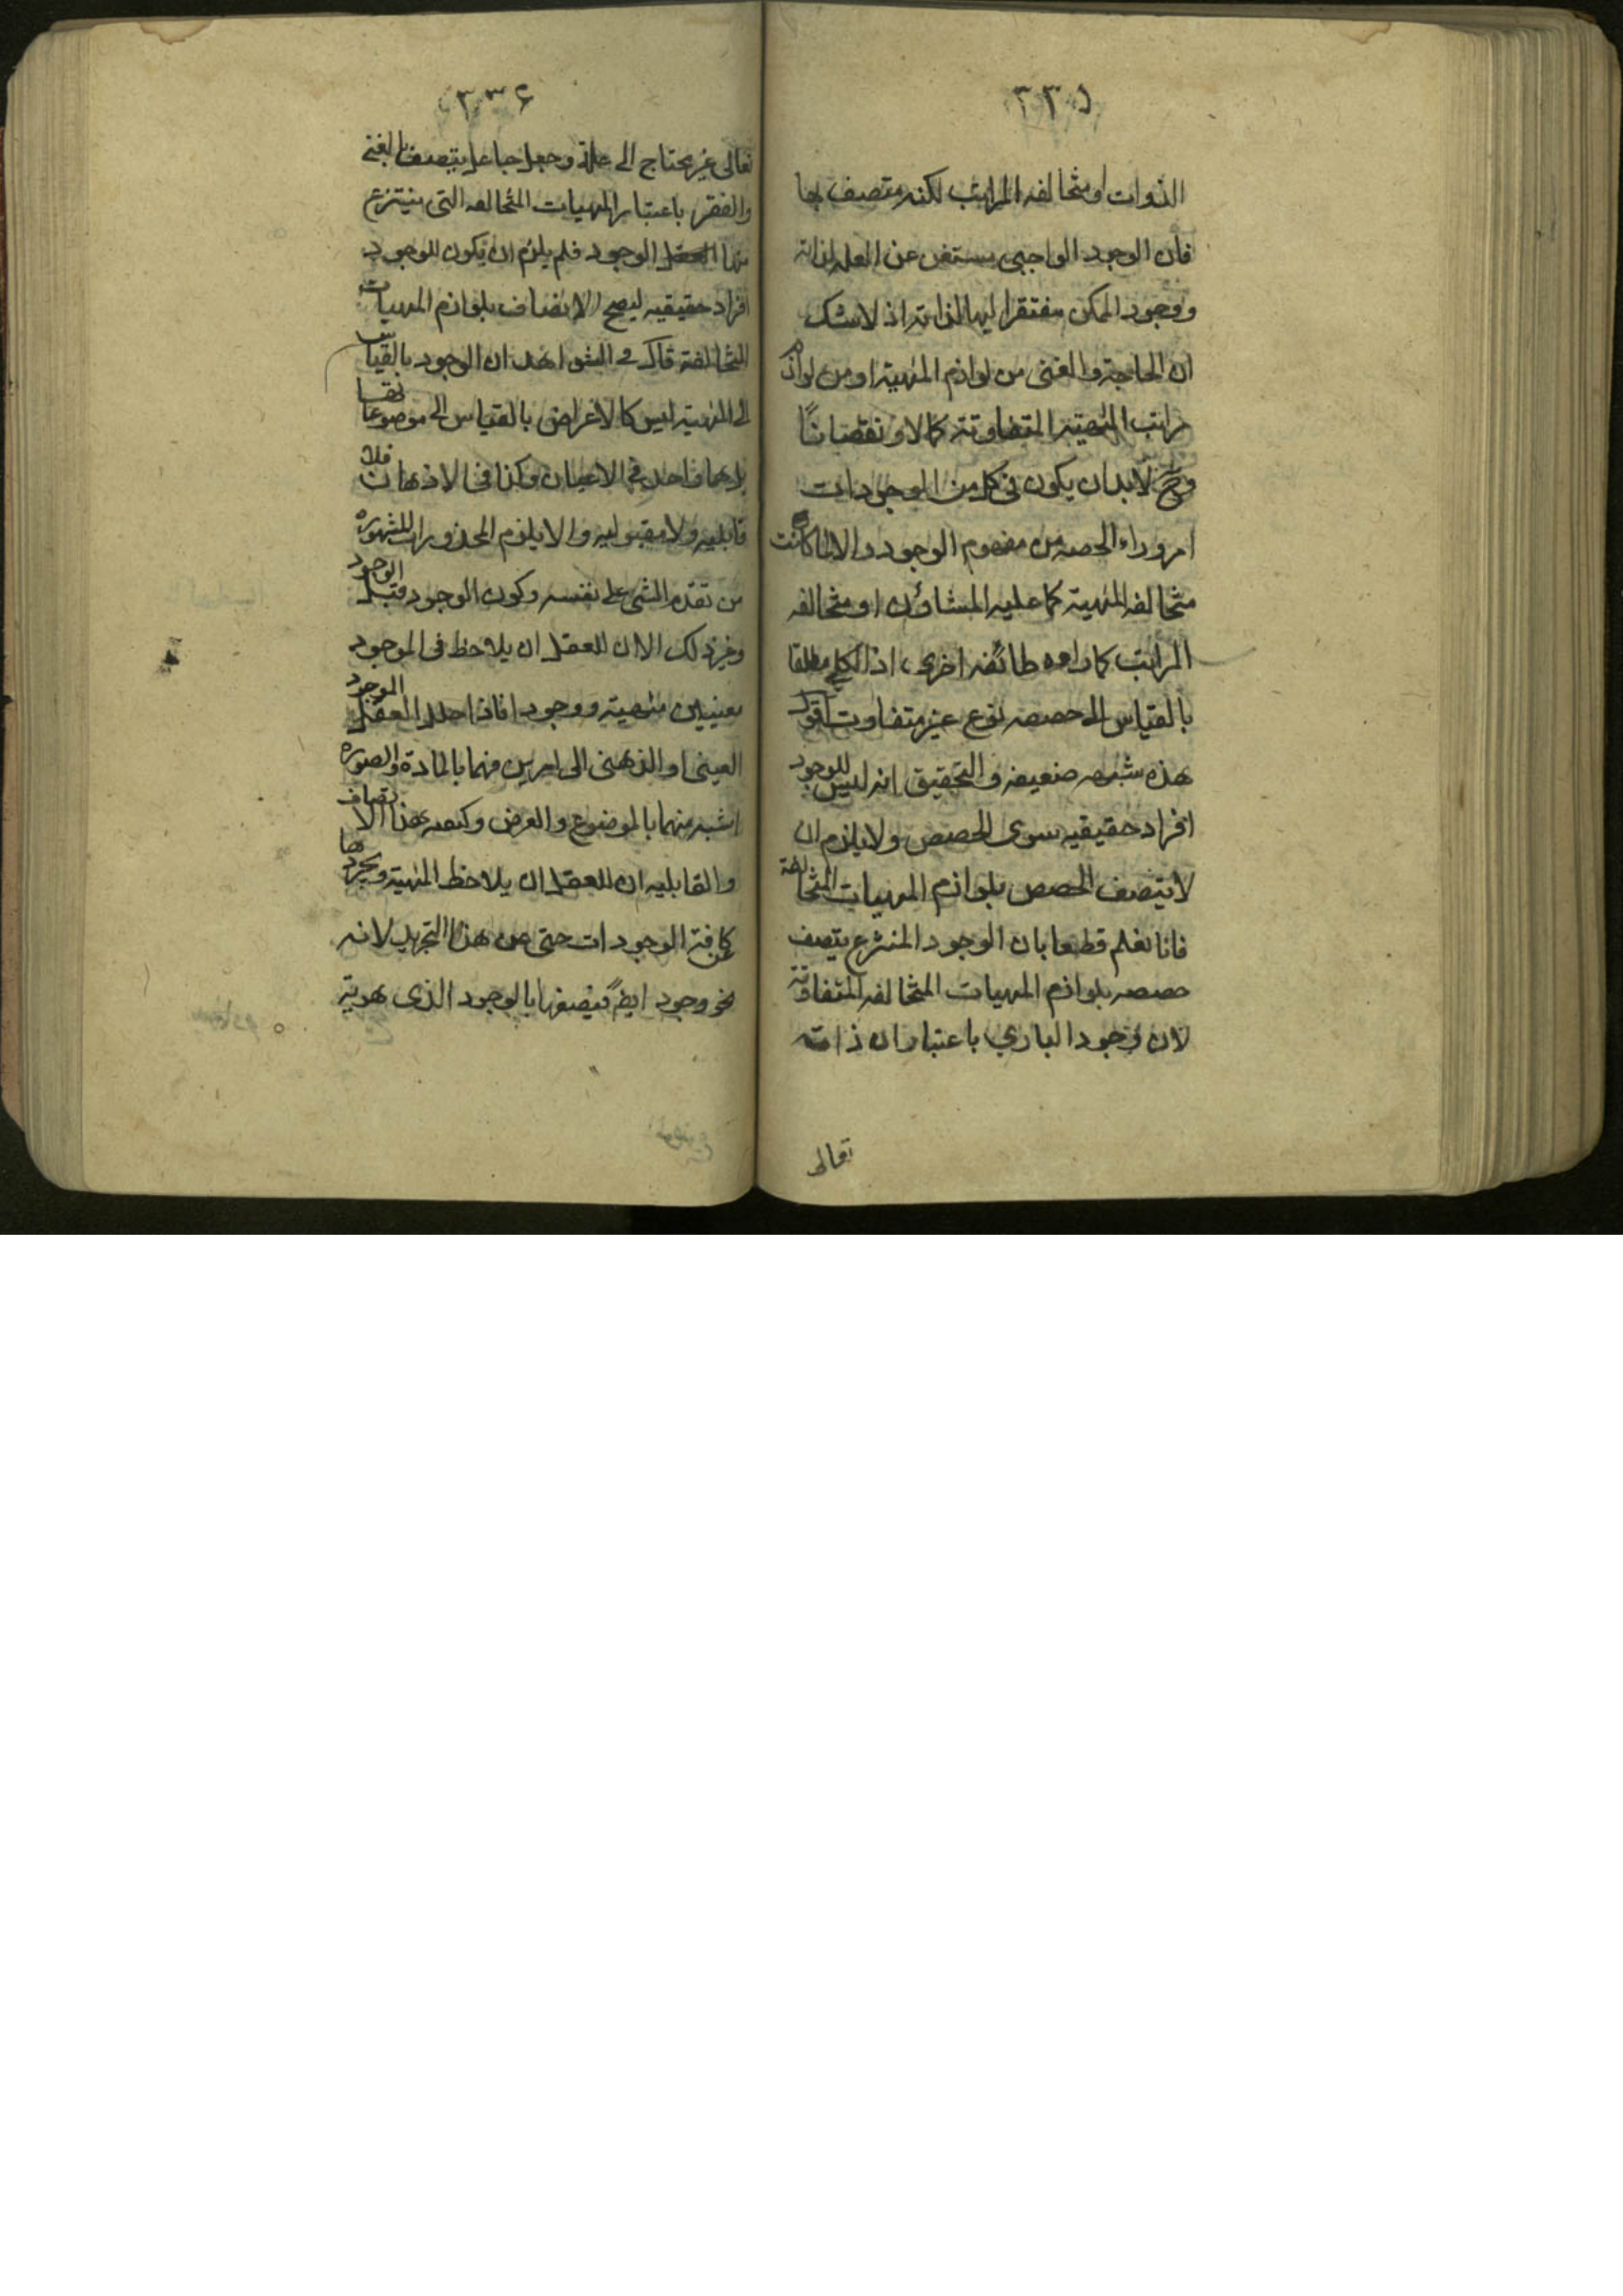 ٣٣٥
الذوات او متخالفه المراتب لكنه متصف بها
فان الوجود الواجبي يستغنى عن العله لذاته
ووجود الممكن مفتقرا اليها لذاته اذ لا شك
ان الحاجة والغنى من لوازم المهية او من لوازم
مراتب المهية المتفاوتة كمالا ونقصانا
وح لا بد ان يكون في كل من الموجودات
امر وراء الحصه من مفهوم الوجود والا لما كانت
متخالفه المهية كما عليه المشاؤن او متخالفه
المراتب كما راه طائفه اخرى اذ الكلي مطلقا
بالقياس الى حصصه نوع غير متفاوت اقول
هذه شبهه ضعيفه والتحقيق انه ليس للوجود
افراد حقيقيه سوى الحصص ولا يلزم ان
لا يتصف الحصص بلوازم المهيات المتخالفة
فانا نعلم قطعا بان الوجود المنتزع يتصف
حصصه بلوازم المهيات المتخالفه المتفاوتة
لان وجود الباري باعتبار ان ذاته
تعالى
٣٣۶
تعالى غير محتاج الى علة وجعل جاعل يتصف بالغنى
والفقر باعتبار المهيات المتخالفه التى ينتزع
منها العقل الوجود فلم يلزم ان يكون للوجود
افراد حقيقيه ليصح الاتصاف بلوازم المهيات
المتخالفة قال في الشواهد ان الوجود بالقياس
الى المهية ليس كالاعراض بالقياس الى موضوعاتها
بل هما واحد في الاعيان وكذا في الاذهان فلا
قابليه ولا مقبوليه والا يلزم المحذورات المشهوره
من تقدم الشئ على نفسه وكون الوجود قبل الوجود
وغير ذلك الا ان للعقل ان يلاحظ فى الموجود
معنيين مهية ووجودا فاذا حلل العقل الموجود
العينى او الذهنى الى امرين فهما بالمادة والصوره
اشبه منهما بالموضوع والعرض وكيفيه هذا الاتصاف
والقابليه ان للعقل ان يلاحظ المهية ويجردها
عن كافة الوجودات حتى عن هذا التجريد لانه
نحو وجود ايضا فيصفها بالوجود الذى هو بتة